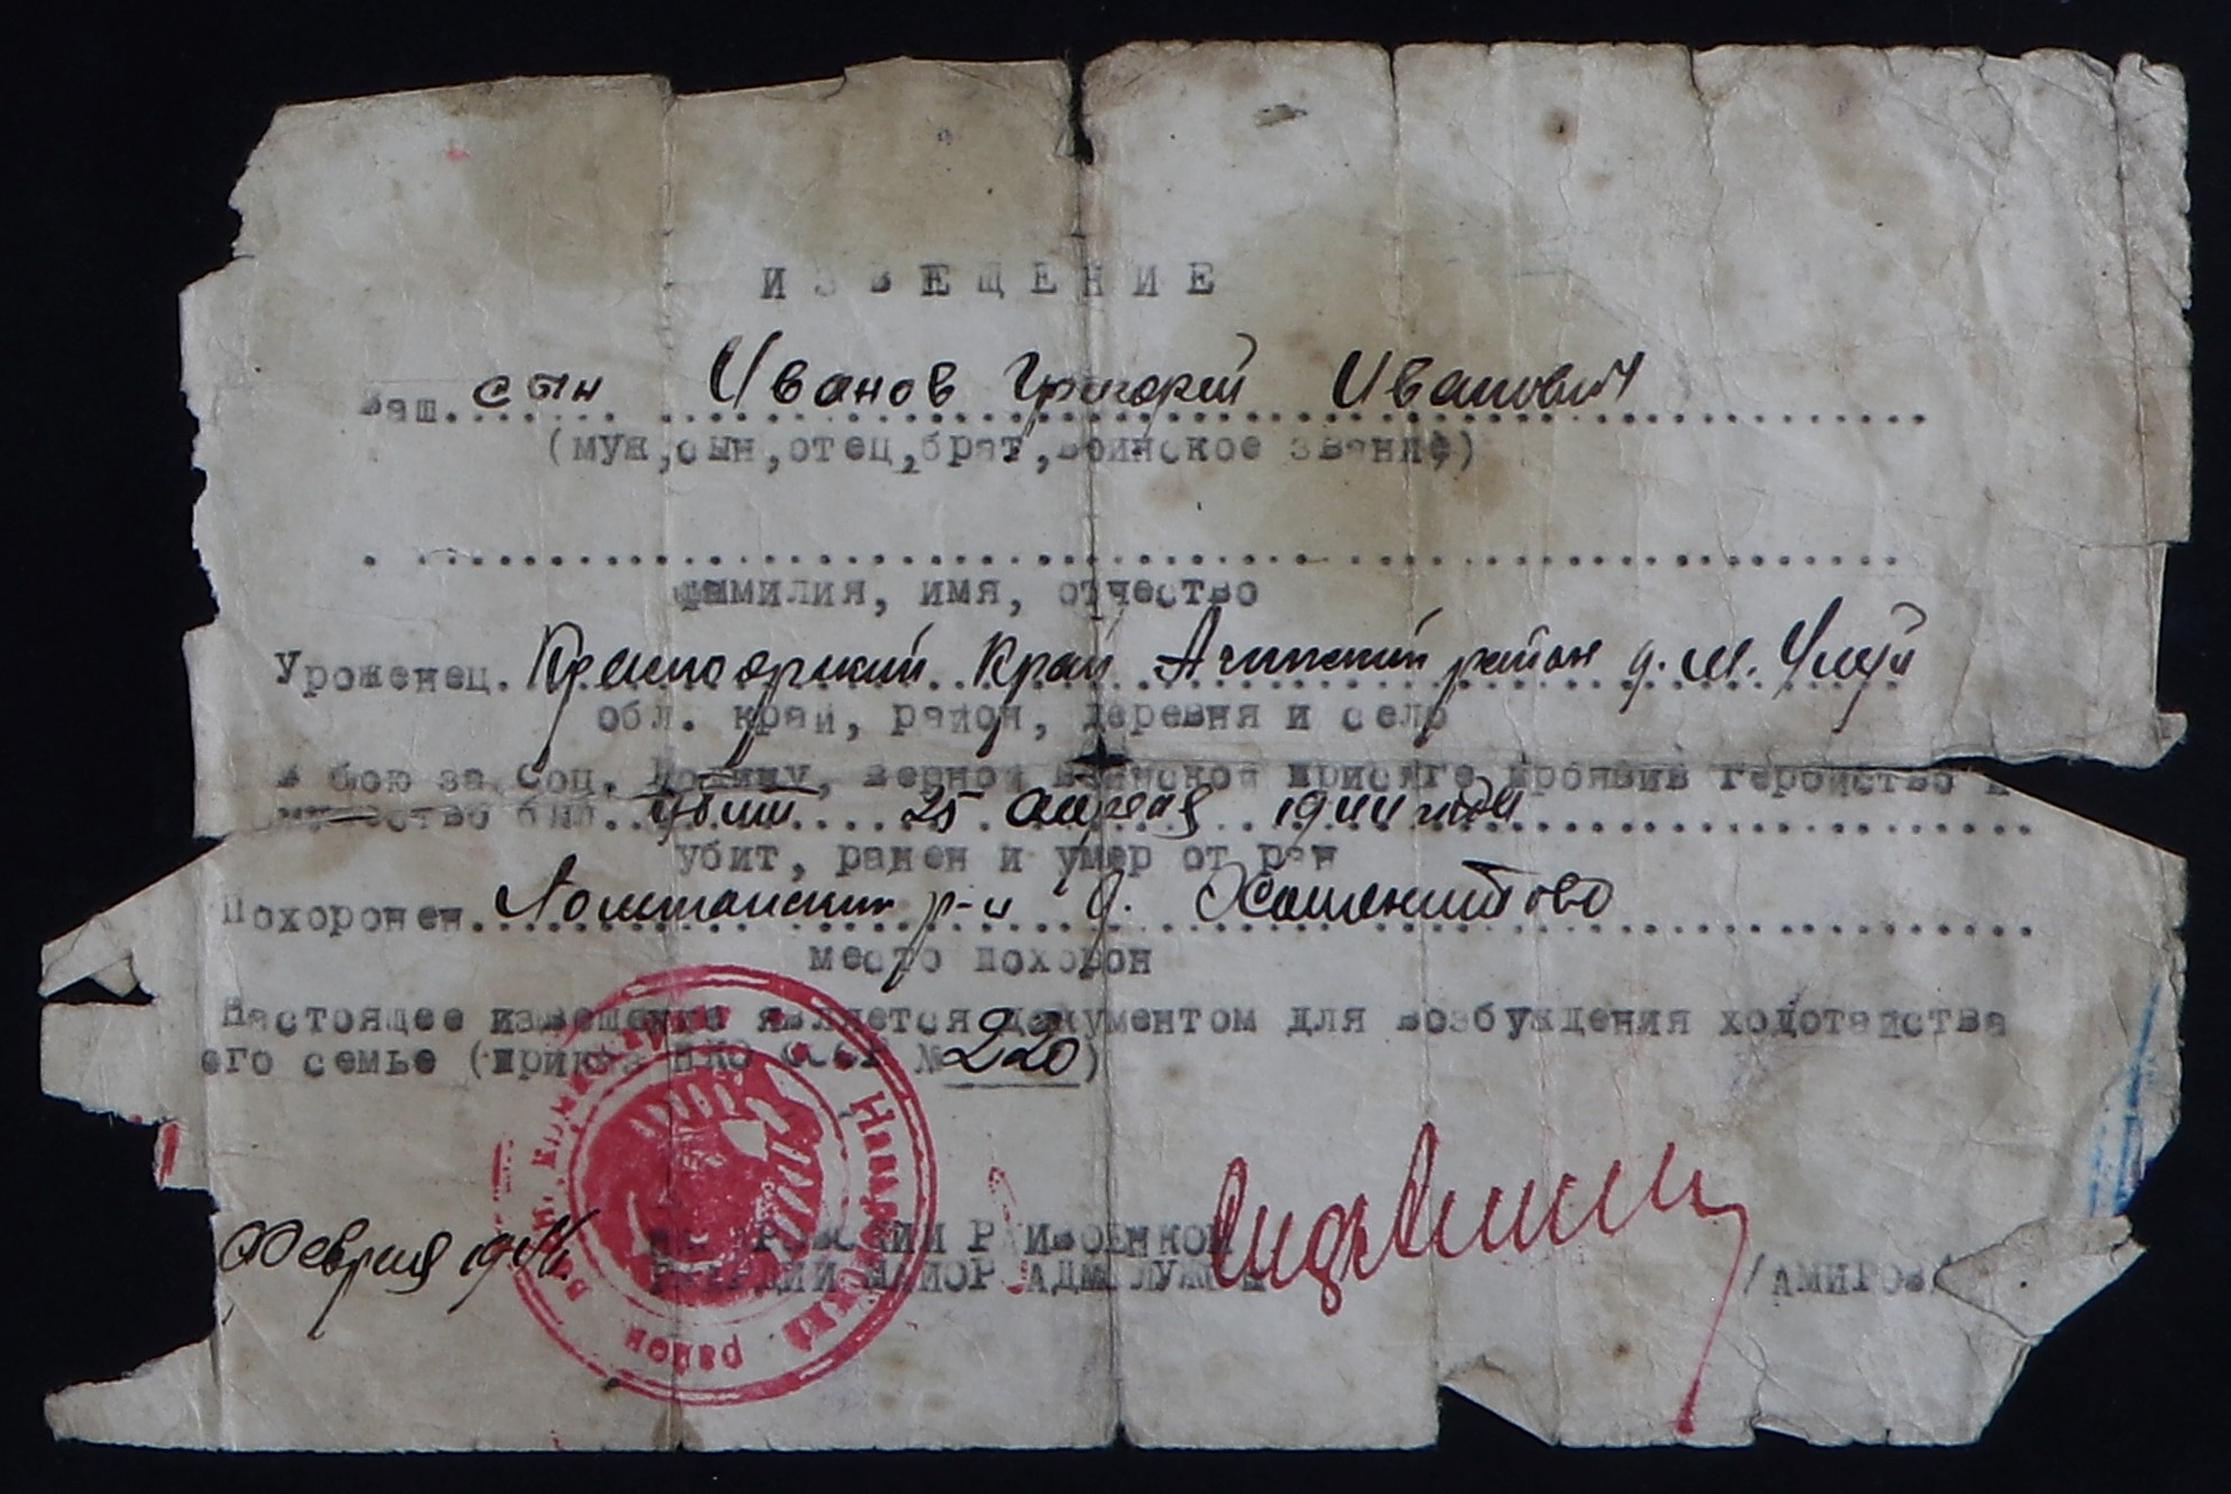 ИЗВЕЩЕНИЕ
Ваш. сын Иванов Григорий Иванович
(муж,сын,отец,брат,воинское звание)
фамилия, имя, отчество
Уроженец. Красноярский Край Ачинский район д. М. Улуй
обл. край, район, деревня и село
В бою за Соц. Родину, верной воинской присяге проявив геройство и
мужество был. убит 25 апреля 1944 года
убит, ранен и умер от ран
Похоронен. р-н д.
место похорон
Настоящее извещение является документом для возбуждения ходотайства
его семье (приказ НКО СССР № 220)
Февраля
РАЙВОЕНКОМ
МАЙОР АДМ СЛУЖБЫ /АМИРОВ/
район